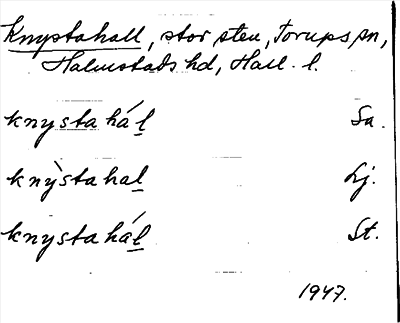 Knystahall, stor sten, Torups sn,
Halmstads hd, Hall. l.
knystahál Sa.
knỳstahal Lj.
knystahál St.
1947.